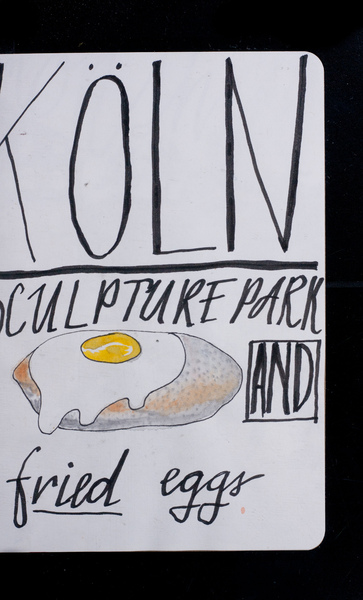 KÖLN
SCULPTURE PARK
AND
fried eggs